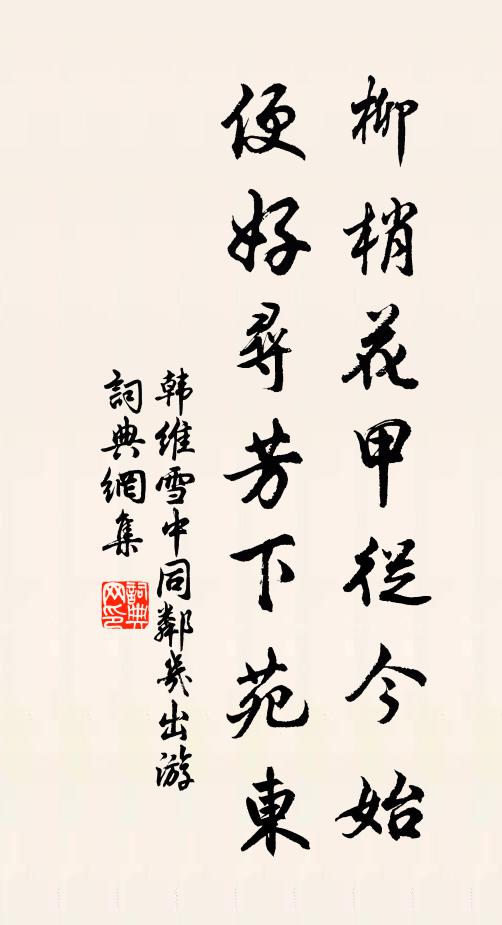 柳梢花甲從今始
便好尋芳下苑東
韩維雪中同鄰幾出游
詞典網集
詞典网印